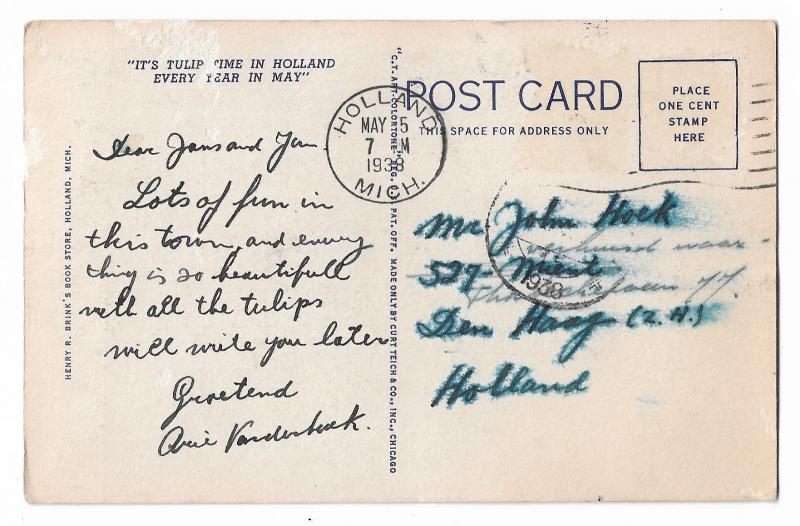 "IT'S TULIP TIME IN HOLLAND
EVERY YEAR IN MAY"
Dear Jans and
Lots of fun in
this town, and every
thing is so beautifull
with all the tulips
will write you later
Groetend
Arie Vanderhoek.
HENRY R. BRINK'S BOOK STORE, HOLLAND, MICH.
"C.T. ART-COLORTONE" REG. U.S. PAT. OFF. MADE ONLY BY CURT TEICH & CO., INC., CHICAGO
HOLLAND
MAY 15
7 M
1938
MICH.
POST CARD
THIS SPACE FOR ADDRESS ONLY
PLACE
ONE CENT
STAMP
HERE
Mr John Hoek
verhuisd naar
527
1938
Den Haag (Z.H.)
Holland